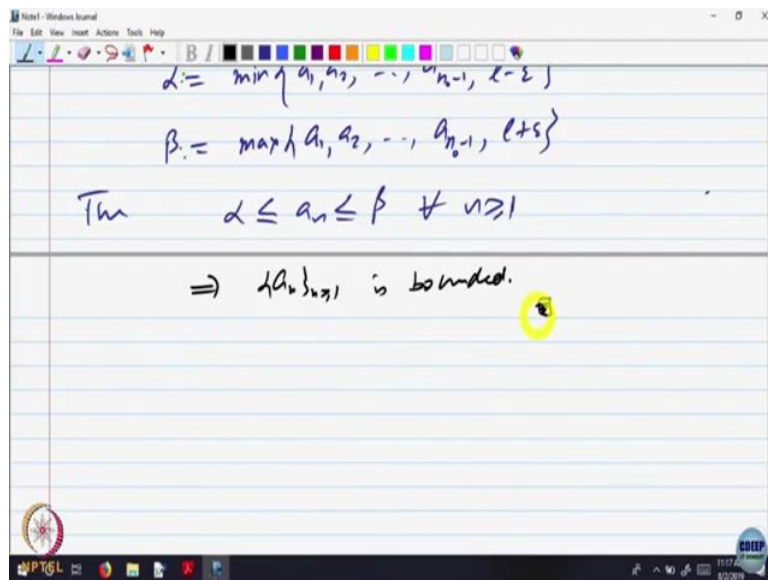 Note1 - Windows Journal
File Edit View Insert Actions Tools Help
B I
α := min{ a₁, a₂, ..., aₙ₀₋₁, l-ε }
β := max{ a₁, a₂, ..., aₙ₀₋₁, l+ε }
Then α ≤ aₙ ≤ β ∀ n≥1
⇒ {aₙ}ₙ≥₁ is bounded.
NPTEL
CDEEP
8/2/2019